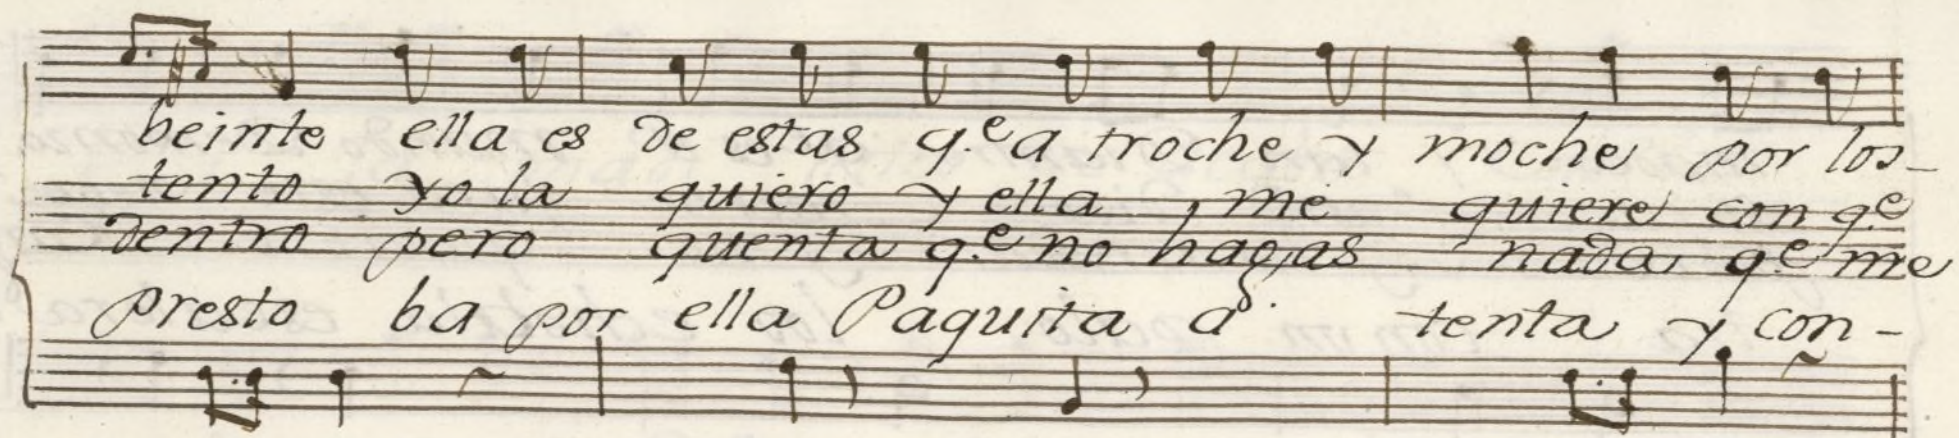 beinte ella es de estas q.e a troche y moche por los_
tento yo la quiero y ella me quiere con q.e
dentro pero quenta q.e no hagas nada q.e me
presto ba por ella Paquita a tenta y con-